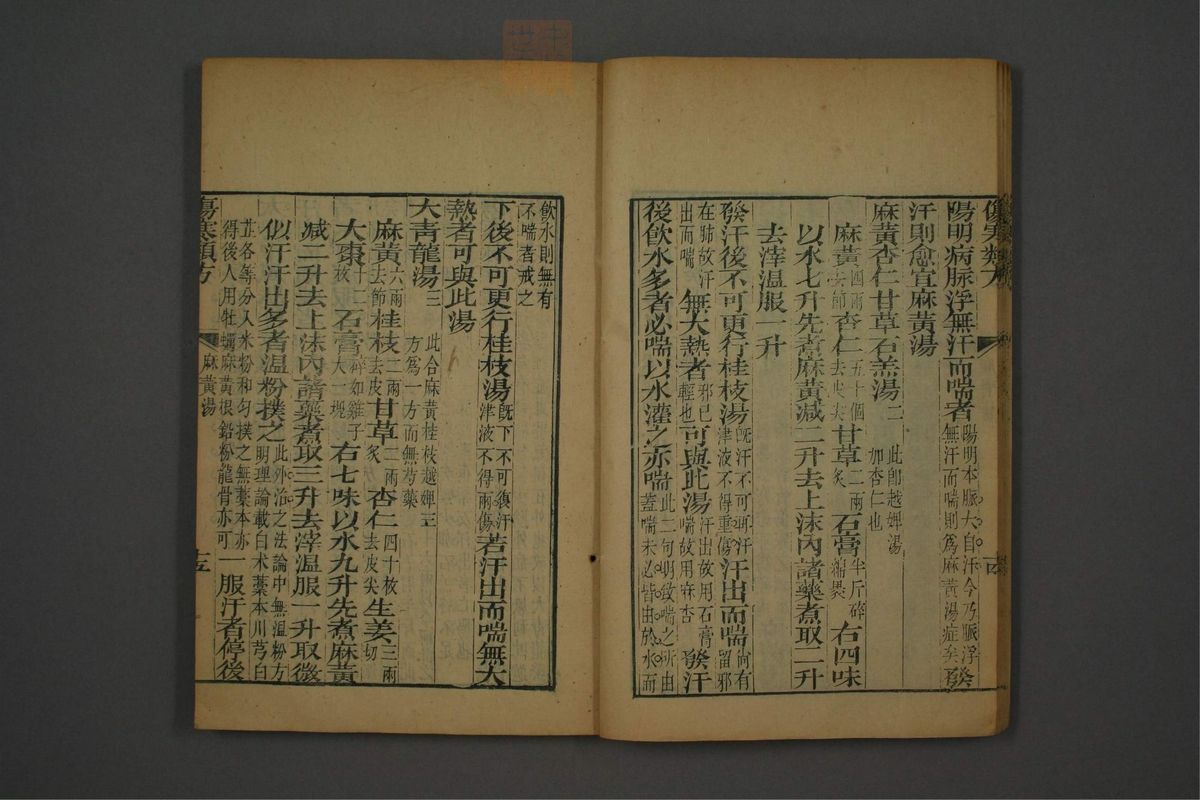 傷寒類方
陽明病脈浮無汗而喘者陽明本脈大自汗今乃脈浮無汗而喘則爲麻黃湯症矣發
汗則愈宜麻黃湯
麻黃杏仁甘草石羔湯二此卽越婢湯加杏仁也
麻黃四兩去節杏仁五十個去皮尖甘草二兩炙石膏半斤碎綿裹右四味
以水七升先煮麻黃減二升去上沫內諸藥煮取二升
去滓溫服一升
發汗後不可更行桂枝湯旣汗不可再汗津液不得重傷汗出而喘尙有留邪
在肺故汗出而喘無大熱者邪已輕也可與此湯汗出故用石膏喘故用麻杏發汗
後飮水多者必喘以水灌之亦喘此二句明致喘之所由蓋喘未必皆由於水而
飮水則無有不喘者戒之
下後不可更行桂枝湯旣下不可復汗津液不得兩傷若汗出而喘無大
熱者可與此湯
大靑龍湯三此合麻黃桂枝越婢三方爲一方而無芍藥
麻黃六兩去節桂枝二兩去皮甘草二兩炙杏仁四十枚去皮尖生姜三兩切
大棗十二枚石膏碎如雞子大一塊右七味以水九升先煮麻黃
減二升去上沫內諸藥煮取三升去滓溫服一升取微
似汗汗出多者溫粉撲之此外治之法論中無溫粉方明理論載白术藁本川芎白
芷各等分入米粉和匀撲之無藁本亦得後人用牡蠣麻黃根鉛粉龍骨亦可一服汗者停後
傷寒類方
麻黃湯